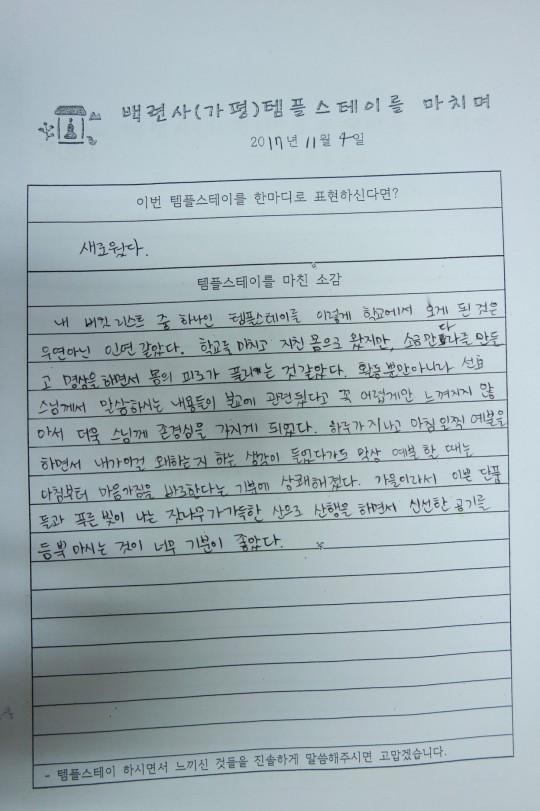 백련사(가평)템플스테이를 마치며
2017년 11월 4일
이번 템플스테이를 한마디로 표현하신다면?
새로웠다.
템플스테이를 마친 소감
내 버킷리스트 중 하나인 템플스테이를 이렇게 학교에서 오게 된 것은
우연아닌 인연 같았다. 학교를 마치고 지친 몸으로 왔지만, 소금만다라를 만들
고 명상을 하면서 몸의 피로가 풀리는 것 같았다. 활동뿐만아니라 선효
스님께서 말씀하시는 내용들이 불교에 관련됬다고 꼭 어렵게만 느껴지지 않
아서 더욱 스님께 존경심을 가지게 되었다. 하루가 지나고 아침 일찍 예불을
하면서 내가이걸 왜하는지 하는 생각이 들었다가도 막상 예불 할 때는
아침부터 마음가짐을 바로한다는 기분에 상쾌해졌다. 가을이라서 이쁜 단풍
들과 푸른 빛이 나는 잣나무가가득한 산으로 산행을 하면서 신선한 공기를
듬뿍 마시는 것이 너무 기분이 좋았다.
- 템플스테이 하시면서 느끼신 것들을 진솔하게 말씀해주시면 고맙겠습니다.